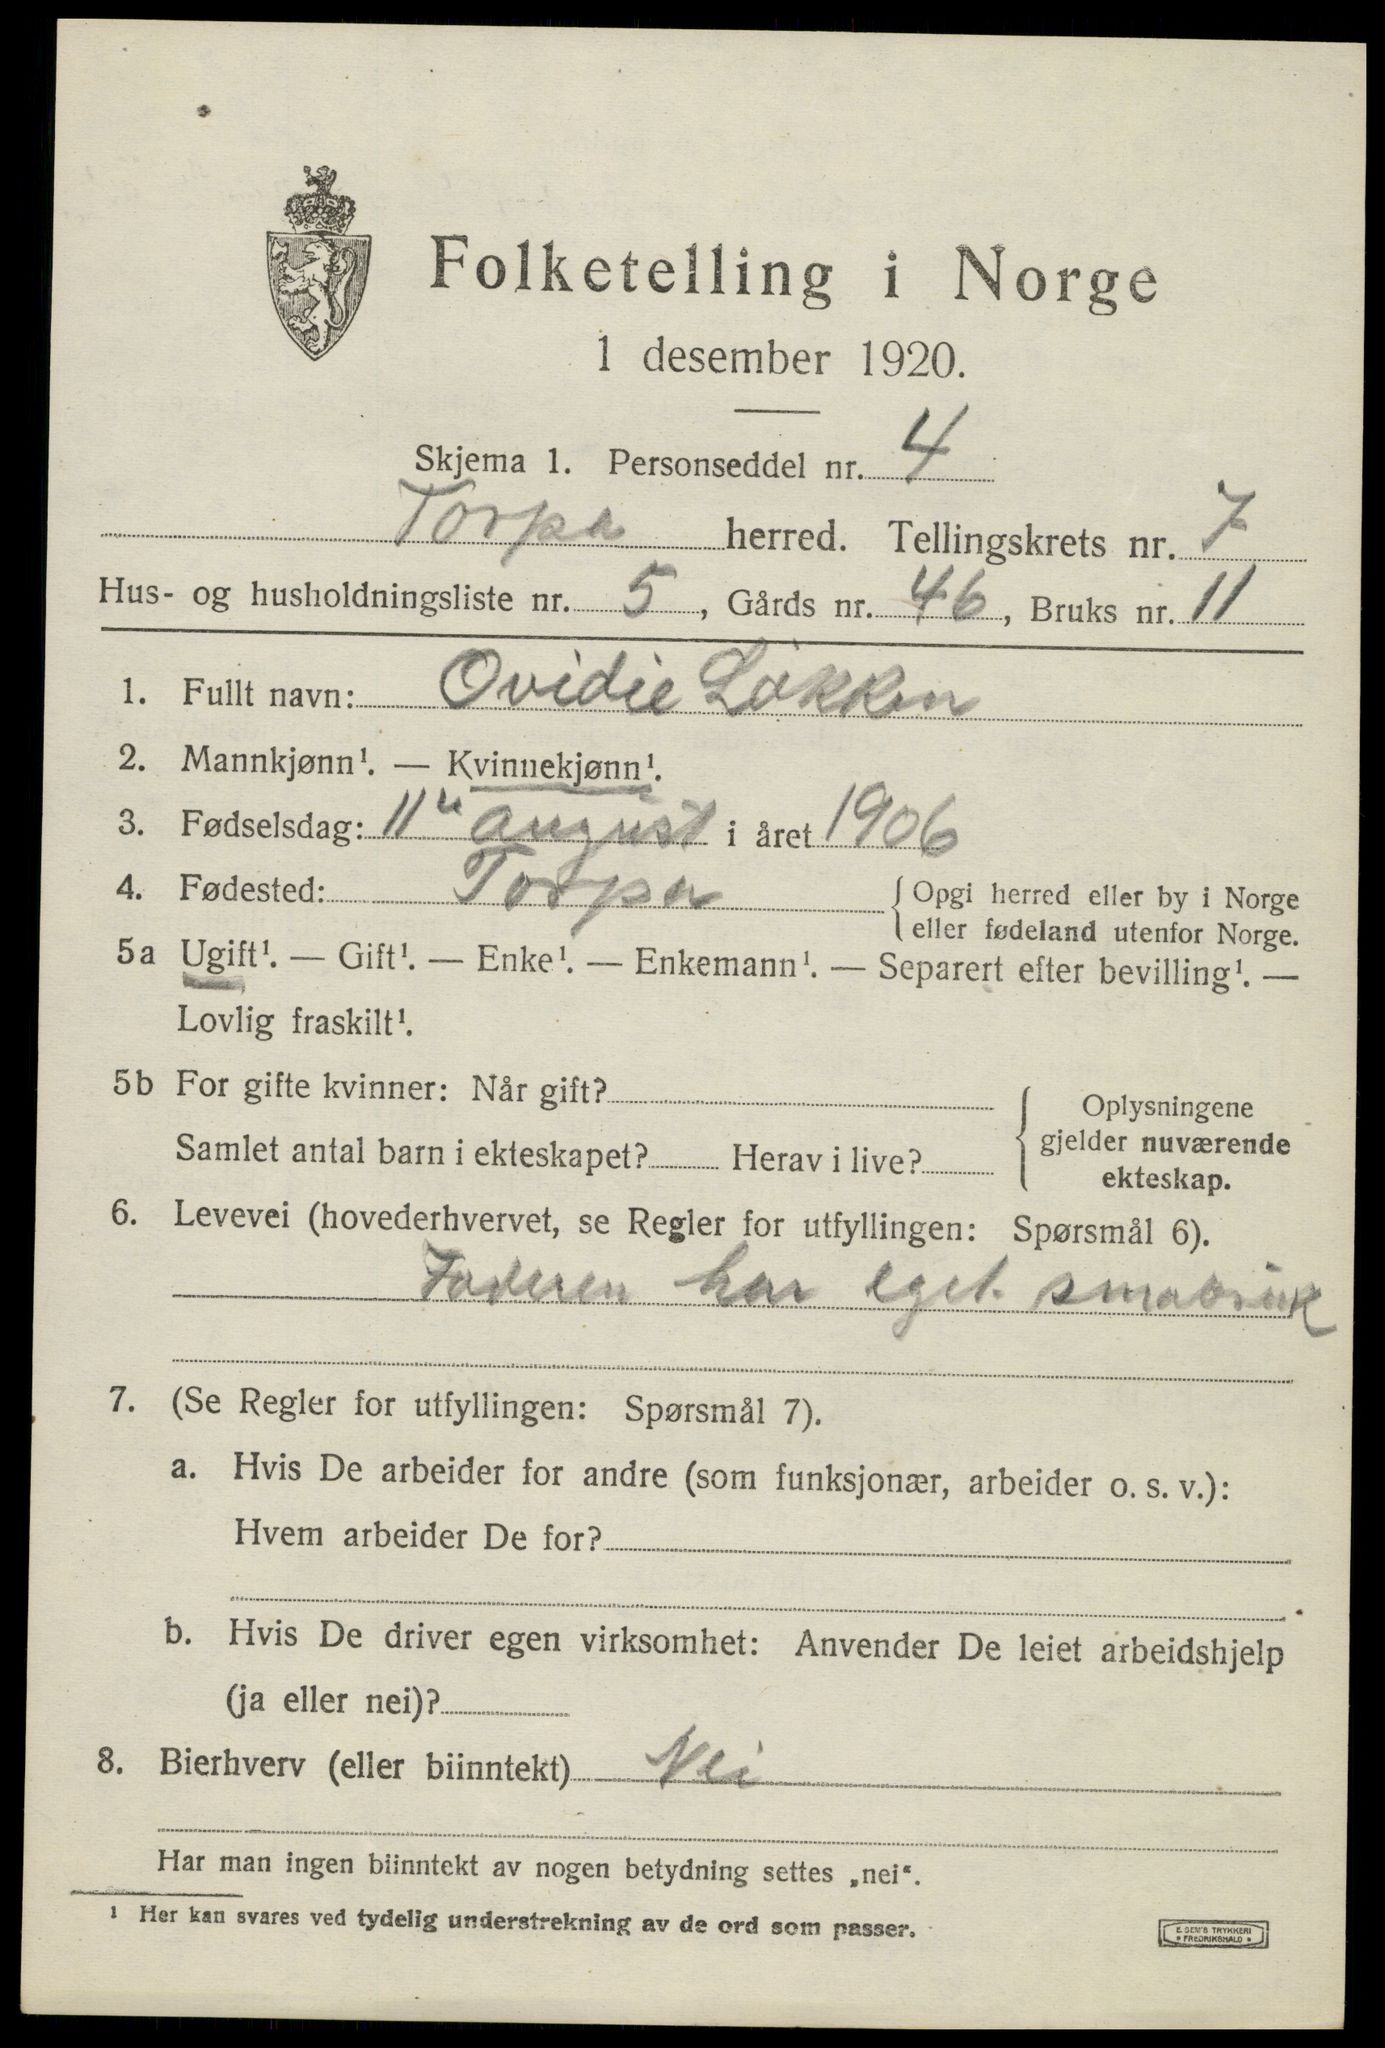 Folketelling i Norge
1 desember 1920.
Skjema 1. Personseddel nr. 4
Torpa herred. Tellingskrets nr. 7
Hus- og husholdningsliste nr. 5, Gårds nr. 46, Bruks nr. 11
1. Fullt navn: Ovidie Løkken
2. Mannkjønn¹. — Kvinnekjønn¹.
3. Fødselsdag: 11" august i året 1906
4. Fødested: Torpa { Opgi herred eller by i Norge
eller fødeland utenfor Norge.
5a Ugift¹. — Gift¹. — Enke¹. — Enkemann¹. — Separert efter bevilling¹. —
Lovlig fraskilt¹.
5b For gifte kvinner: Når gift?
Samlet antal barn i ekteskapet? Herav i live?
{ Oplysningene
gjelder nuværende
ekteskap.
6. Levevei (hovederhvervet, se Regler for utfyllingen: Spørsmål 6).
Faderen har eget smabruk
7. (Se Regler for utfyllingen: Spørsmål 7).
a. Hvis De arbeider for andre (som funksjonær, arbeider o. s. v.):
Hvem arbeider De for?
b. Hvis De driver egen virksomhet: Anvender De leiet arbeidshjelp
(ja eller nei)?
8. Bierhverv (eller biinntekt) Nei
Har man ingen biinntekt av nogen betydning settes „nei“.
¹ Her kan svares ved tydelig understrekning av de ord som passer.
E. SEM'S TRYKKERI
• FREDRIKSHALD •